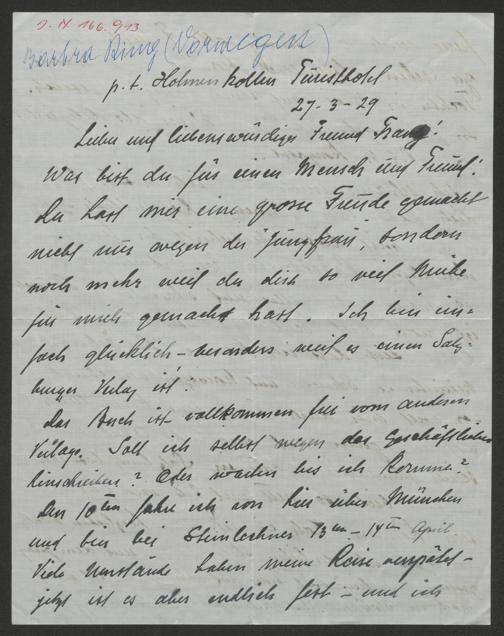 J. N. 166.913
Barbra Ring (Norwegen)
p. t. Holmenkollen Turisthotel
27-3-29
Lieber und liebenswürdiger Freund Franz!
Was bist du für einen Mensch und Freund!
Du hast mir eine grosse Freude gemacht
nicht nur wegen der Jungfrau, sondern
noch mehr weil du dich so viel Mühe
für mich gemacht hast. Ich bin ein-
fach glücklich – besonders weil es einen Salz-
burger Verlag ist.
Das Buch ist vollkommen frei vom anderen
Verlage. Soll ich selbst wegen das Geschäftlichen
hinschreiben? Oder warten bis ich komme?
Den 10ten fahre ich von hier über München
und bin bei Steinlechner 13ten – 14ten April.
Viele Umstände haben meine Reise verspätet –
jetzt ist es aber endlich fest – und ich